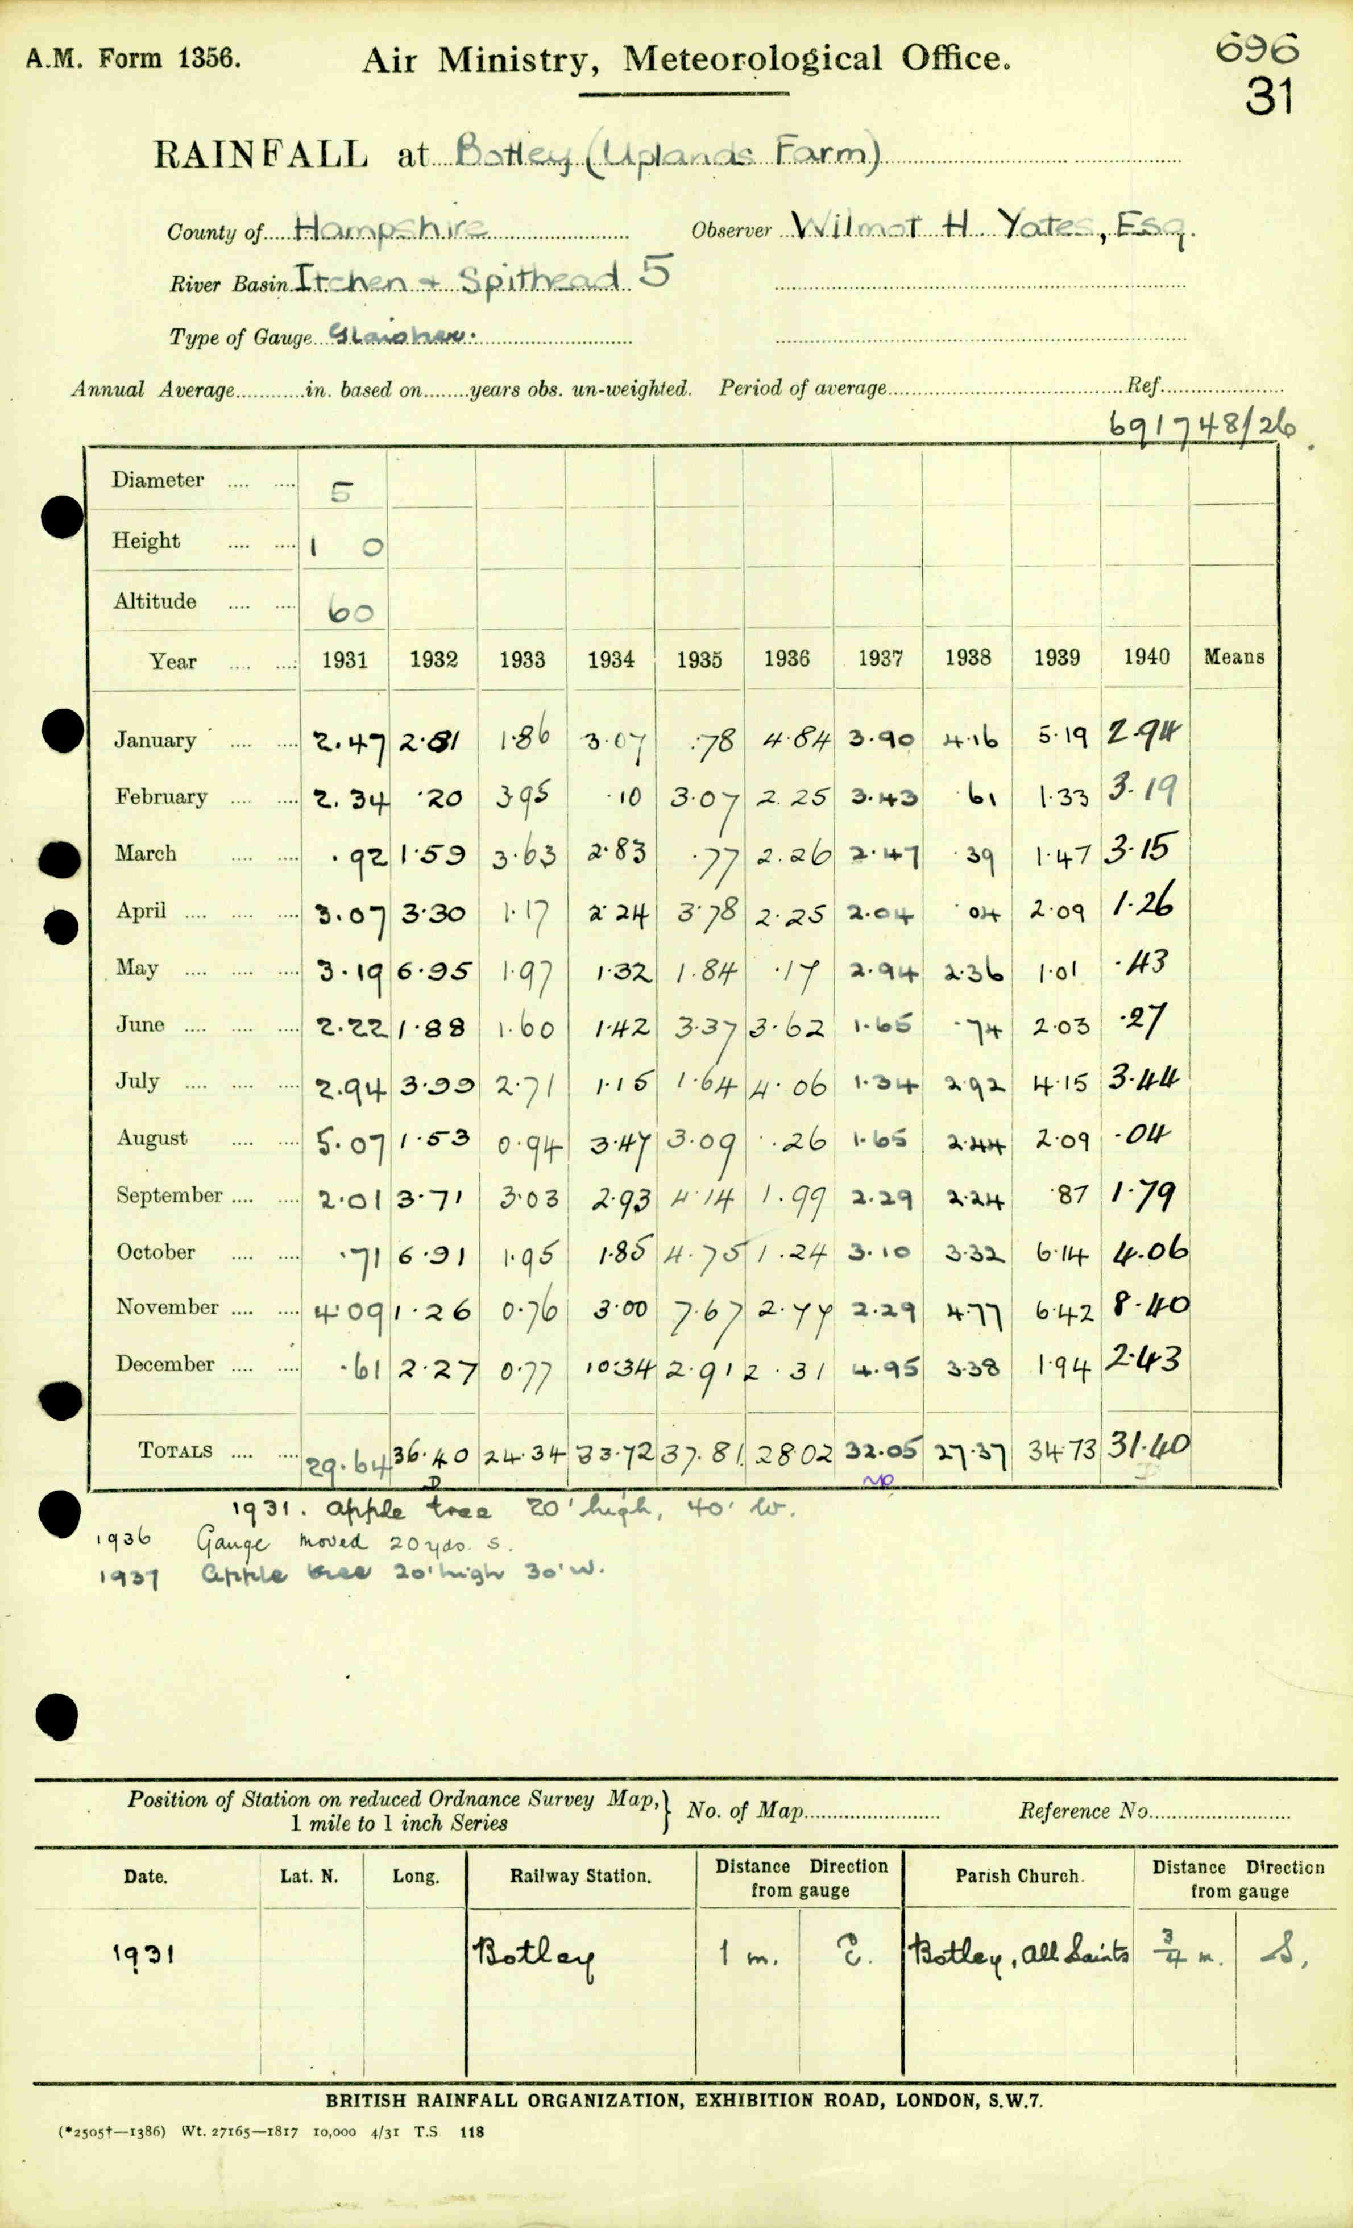 A.M. Form 1356. Air Ministry, Meteorological Office. 696
31
RAINFALL at Botley (Uplands Farm)
County of Hampshire Observer Wilmot H. Yates, Esq.
River Basin Itchen + Spithead 5
Type of Gauge Glaisher.
Annual Average in. based on years obs. un-weighted. Period of average Ref.
691748/26
Diameter 5
Height 1 0
Altitude 60
Year 1931 1932 1933 1934 1935 1936 1937 1938 1939 1940 Means
January 2.47 2.81 1.86 3.07 .78 4.84 3.90 4.16 5.19 2.94
February 2.34 .20 3.95 .10 3.07 2.25 3.43 .61 1.33 3.19
March .92 1.59 3.63 2.83 .77 2.26 2.47 .39 1.47 3.15
April 3.07 3.30 1.17 2.24 3.78 2.25 2.04 .04 2.09 1.26
May 3.19 6.95 1.97 1.32 1.84 .17 2.94 2.36 1.01 .43
June 2.22 1.88 1.60 1.42 3.37 3.62 1.65 .74 2.03 .27
July 2.94 3.99 2.71 1.15 1.64 4.06 1.34 2.92 4.15 3.44
August 5.07 1.53 0.94 3.47 3.09 .26 1.65 2.44 2.09 .04
September 2.01 3.71 3.03 2.93 4.14 1.99 2.29 2.24 .87 1.79
October .71 6.91 1.95 1.85 4.75 1.24 3.10 3.32 6.14 4.06
November 4.09 1.26 0.76 3.00 7.67 2.77 2.29 4.77 6.42 8.40
December .61 2.27 0.77 10.34 2.91 2.31 4.95 3.38 1.94 2.43
TOTALS 29.64 36.40 24.34 33.72 37.81 28.02 32.05 27.37 34.73 31.40
1931. Apple tree 20' high, 40' W.
1936 Gauge moved 20 yds. S.
1937 Apple tree 20' high 30' W.
Position of Station on reduced Ordnance Survey Map,
1 mile to 1 inch Series } No. of Map Reference No.
Date. Lat. N. Long. Railway Station. Distance Direction from gauge Parish Church. Distance Direction from gauge
1931 Botley 1 m. E. Botley, All Saints 3/4 m. S.
BRITISH RAINFALL ORGANIZATION, EXHIBITION ROAD, LONDON, S.W.7.
(*2505†—1386) Wt. 27165—1817 10,000 4/31 T.S 118